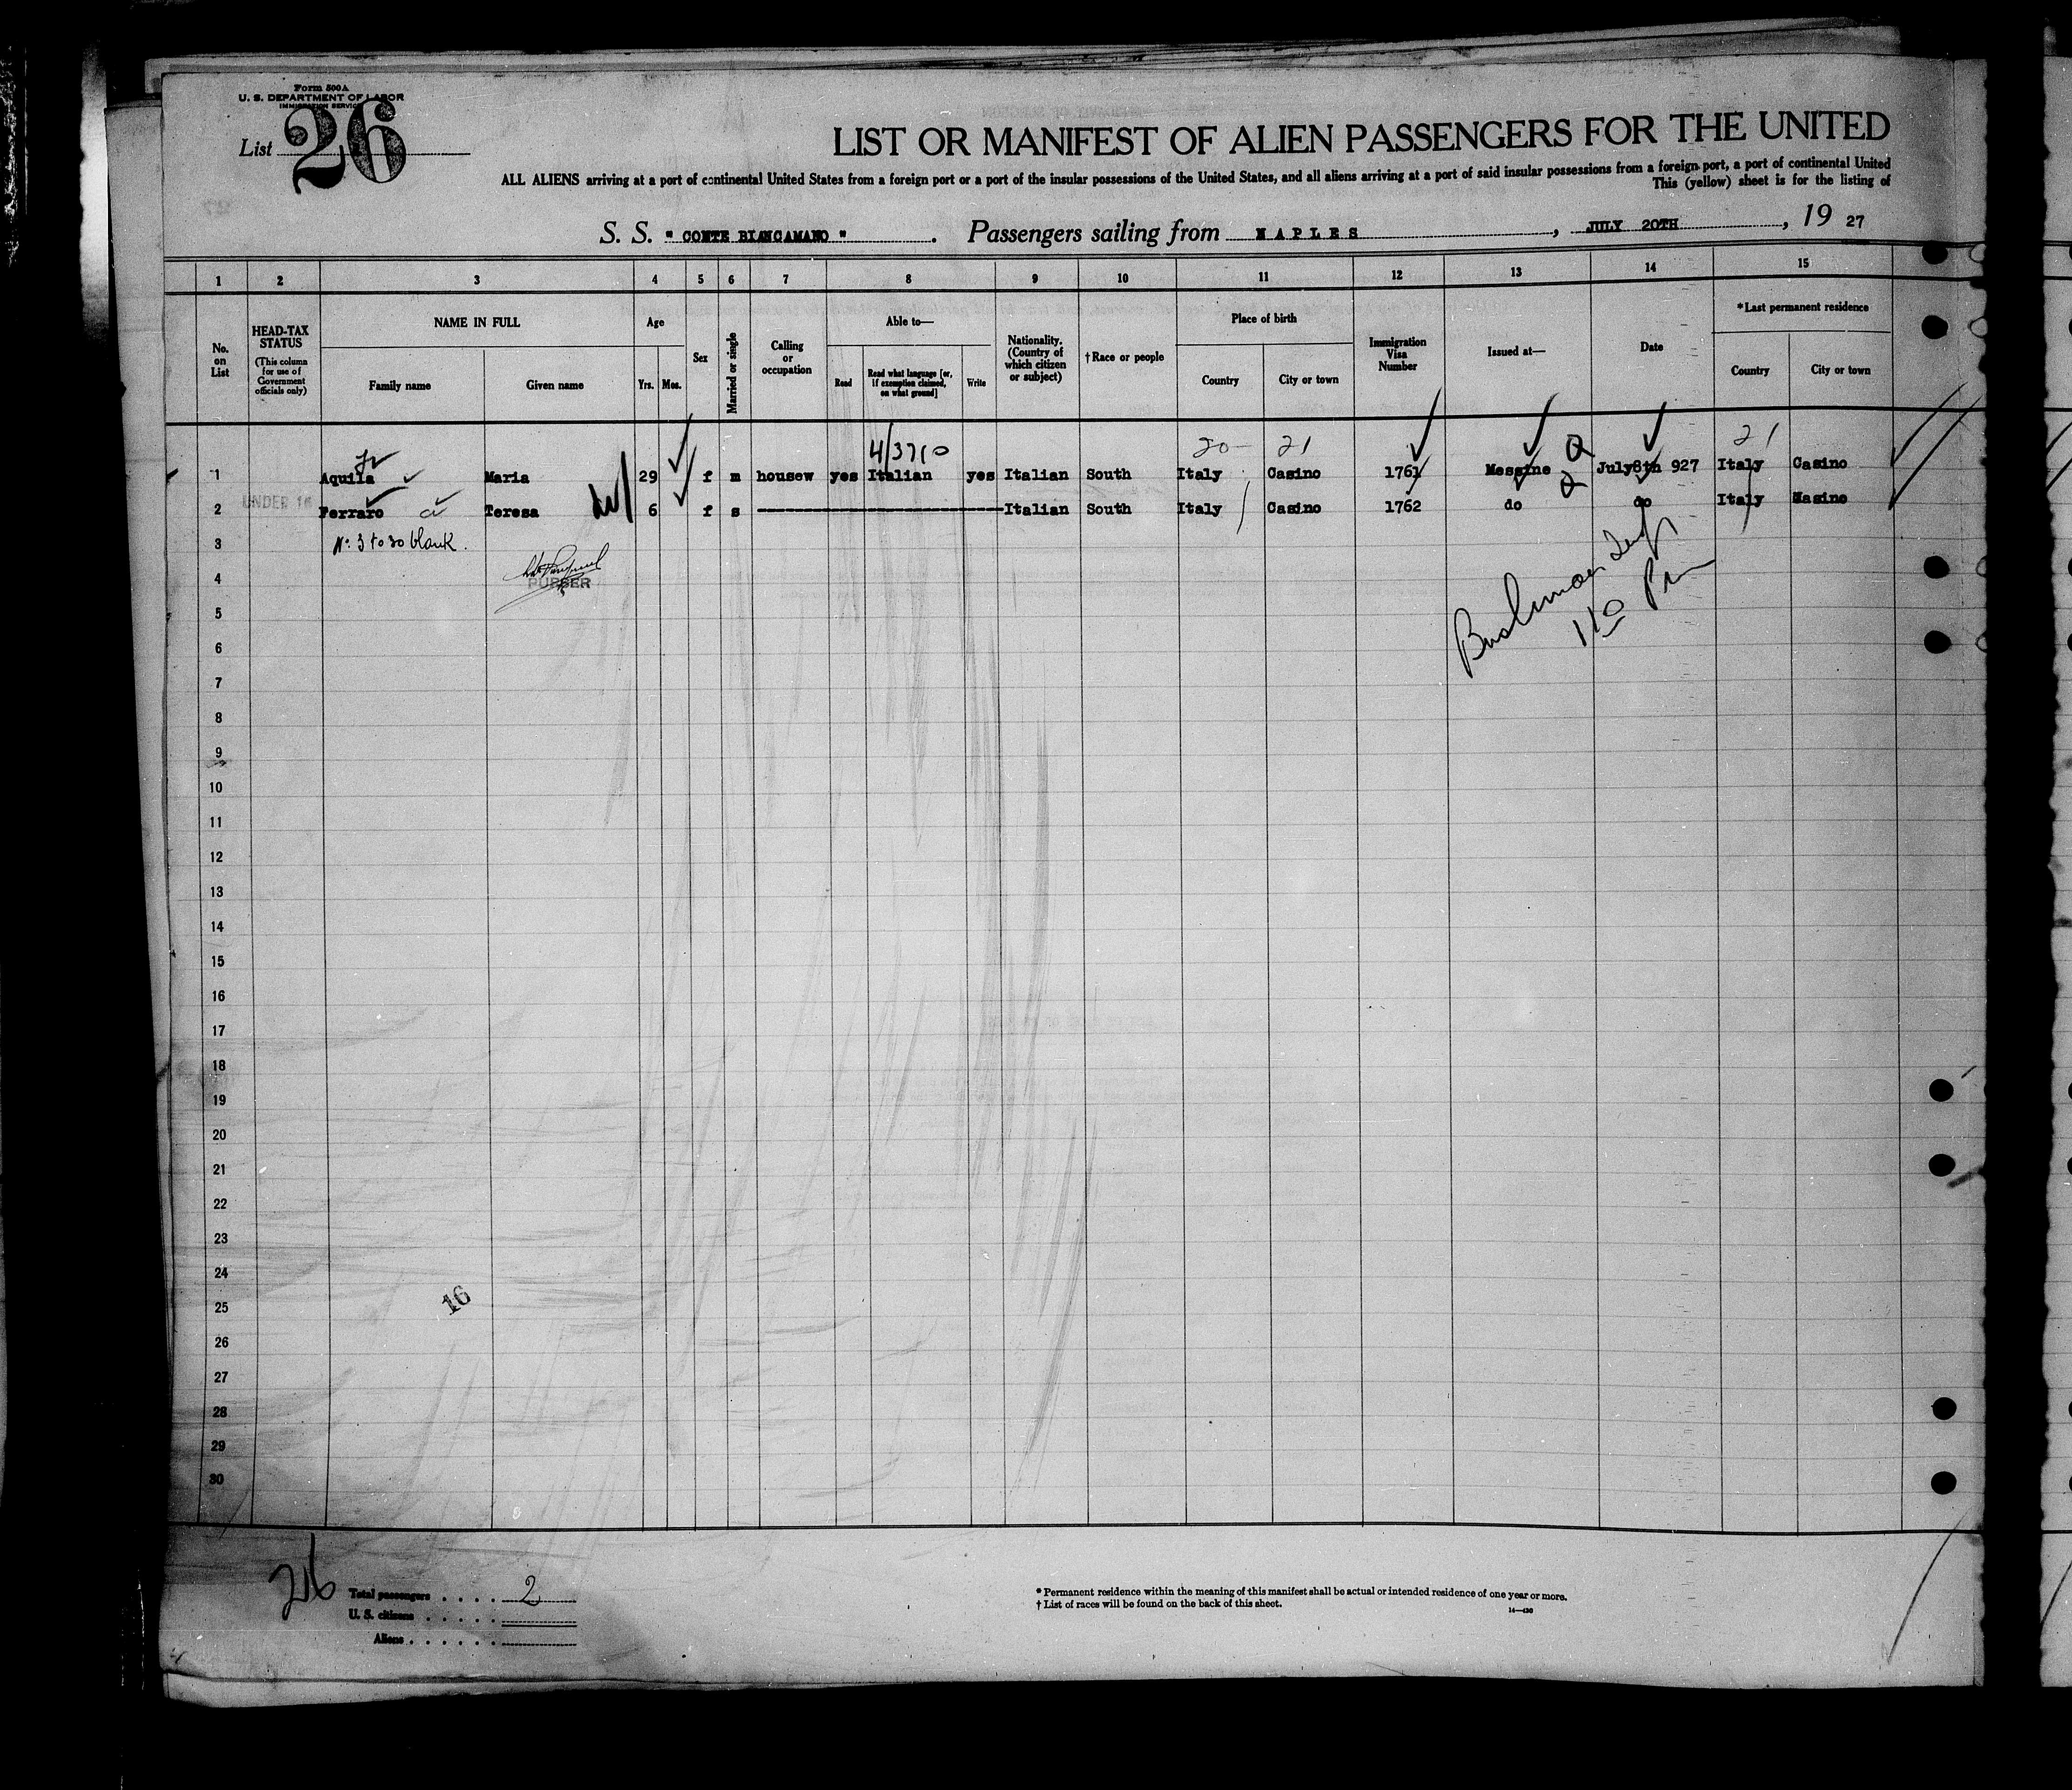 Form 500A
U. S. DEPARTMENT OF LABOR
IMMIGRATION SERVICE
List 26
LIST OR MANIFEST OF ALIEN PASSENGERS FOR THE UNITED
ALL ALIENS arriving at a port of continental United States from a foreign port or a port of the insular possessions of the United States, and all aliens arriving at a port of said insular possessions from a foreign port, a port of continental United
This (yellow) sheet is for the listing of
S. S. " CONTE BIANCAMANO " . Passengers sailing from NAPLES , JULY 20TH , 19 27
1 2 3 4 5 6 7 8 9 10 11 12 13 14 15
No. on List
HEAD-TAX STATUS (This column for use of Government officials only)
NAME IN FULL
Family name Given name
Age
Yrs. Mos.
Sex
Married or single
Calling or occupation
Able to—
Read Read what language [or, if exemption claimed, on what ground] Write
Nationality. (Country of which citizen or subject)
†Race or people
Place of birth
Country City or town
Immigration Visa Number
Issued at—
Date
*Last permanent residence
Country City or town
4/3710 20- 21 21
1 Aquila Maria 29 f m housew yes Italian yes Italian South Italy Casino 1761 Messine July8th 927 Italy Casino
UNDER 16
2 Ferraro Teresa 6 f s Italian South Italy Casino 1762 do do Italy Masino
3 No. 3 to 30 blank.
4 PURSER
5
6
7
8
9
10
11
12
13
14
15
16
17
18
19
20
21
22
23
24
25
26
27
28
29
30
16
26
Total passengers . . . . 2
U. S. citizens . . . . .
Aliens . . . . . .
* Permanent residence within the meaning of this manifest shall be actual or intended residence of one year or more.
† List of races will be found on the back of this sheet.